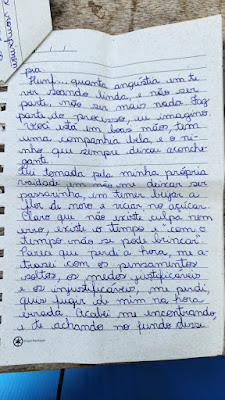 pra
Humf... quanta angústia em te
ver soando linda, e não ser
parte, não ser mais nada. Faz
parte do processo, eu imagino
Você está em boas mãos, tem
uma companhia bela, e o ni-
nho que sempre deixou aconche-
gante.
Fui tomada pela minha própria
vaidade em não me deixar ser
passarinha, um temer beijar a
flor de novo e viciar no açúcar.
Claro que não existe culpa nem
erro, existe o tempo e "com o
tempo não se pode brincar".
Parea que perdi a hora, me a-
trasei com os pensamentos
soltos, os medos justificáveis
e os injustificáveis, me perdi,
quis fugir de mim na hora
errada. Acabei me encontrando,
e te achando no fundo desse